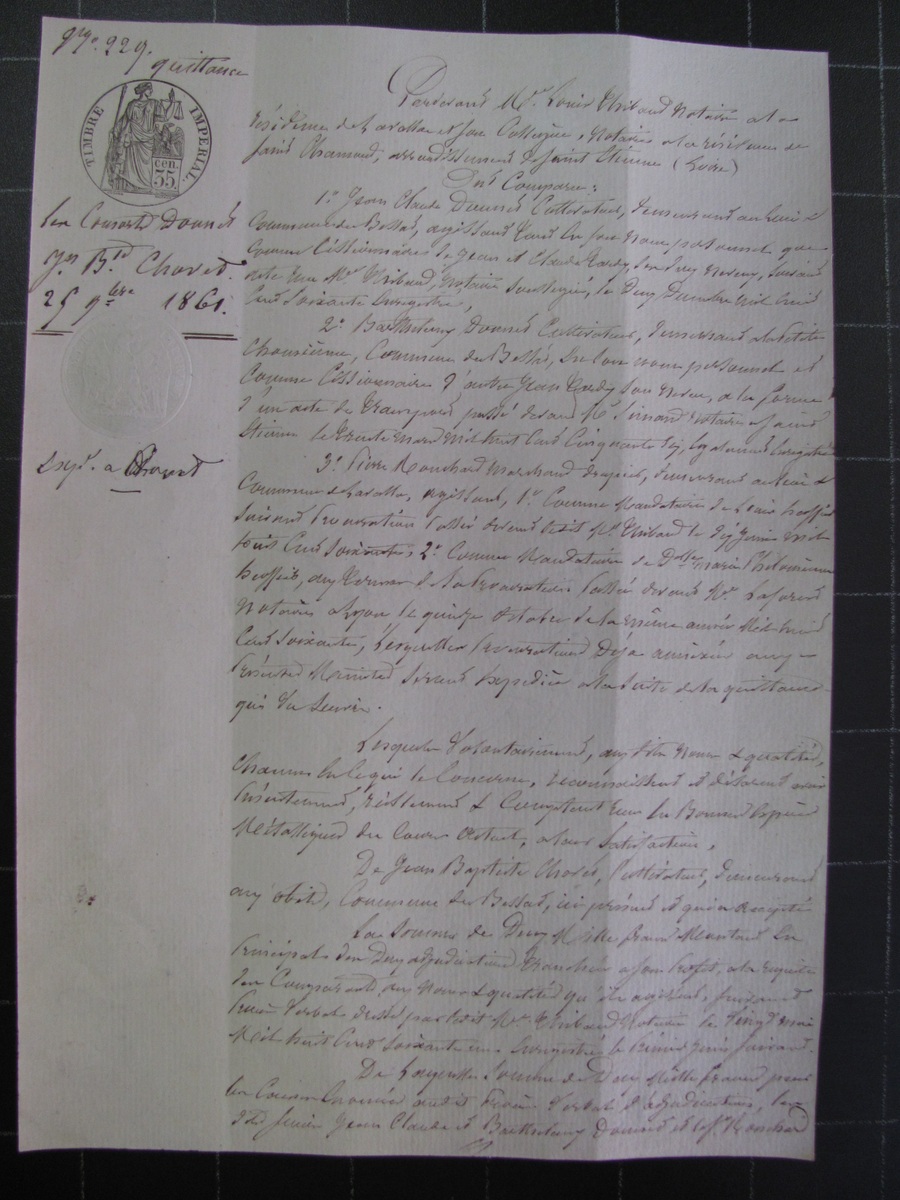 N.° 229.
quittance
TIMBRE IMPERIAL
cen. 35.
les Consorts
J.n B.te Chovet.
25 9.bre 1861.
Exp.n a Chovet
Pardevant M.e Louis Thibaud Notaire a la
résidence de et son Collègue, Notaire a la résidence de
Saint Chamond, arrondissement de Saint Etienne (Loire)
Ont Comparu:
1.° Jean Claude Cultivateur, demeurant au lieu
Commune de Bessat, agissant tant en son nom personnel que
comme Cessionnaire de Jean et Claude ses deux neveux, suivant
acte reçu M.e Thibaud, Notaire soussigné, le deux Décembre mil huit
Cent soixante enregistré,
2.° Barthélemy Cultivateur, demeurant a la petite
Commune de Bessat, en son nom personnel et
Comme Cessionnaire d'autre Jean son neveu, a la forme
d'un acte de transport passé devant M.e notaire a Saint
Etienne le trente mars mil huit Cent Cinquante six, également enregistré
3.° Pierre Marchand demeurant au lieu de
Commune de agissant, 1.° Comme Mandataire de Louis
suivant Procuration Passée devant ledit M.e Thibaud le dix Juin mil
huit Cent Soixante; 2.° Comme Mandataire de D.elle Marie Philomène
aux termes de la Procuration Passée devant M.e
Notaire a Lyon le quinze Octobre de la même année Mil huit
Cent soixante, lesquelles Procurations Déjà annexées aux
Présentes Minutes seront expédiées a la suite de la quittance
qui va suivre.
Lesquels Volontairement, aux dits noms & qualités,
Chacun en ce qui le Concerne, reconnaissent et déclarent avoir
Présentement, réellement & Comptant reçu en Bonnes Espèces
Métalliques du Cours actuel, a leur satisfaction,
De Jean Baptiste Chovet, Cultivateur, demeurant
aux Commune de Bessat, ici présent et qui a accepté
La Somme de Deux Mille francs Montant en
Principal des Deux adjudications tranchées a son Profit, a la requête
des Comparants aux noms & qualités qu'ils agissent, suivant
Procès Verbal dressé par ledit M.e Thibaud Notaire le Vingt mai
Mil huit Cent Soixante un Enregistré le premier Juin suivant.
De Laquelle Somme de Deux Mille francs pour
les Causes énoncées audit Procès Verbal d'adjudication, les
dits Jean Claude et Barthélemy et